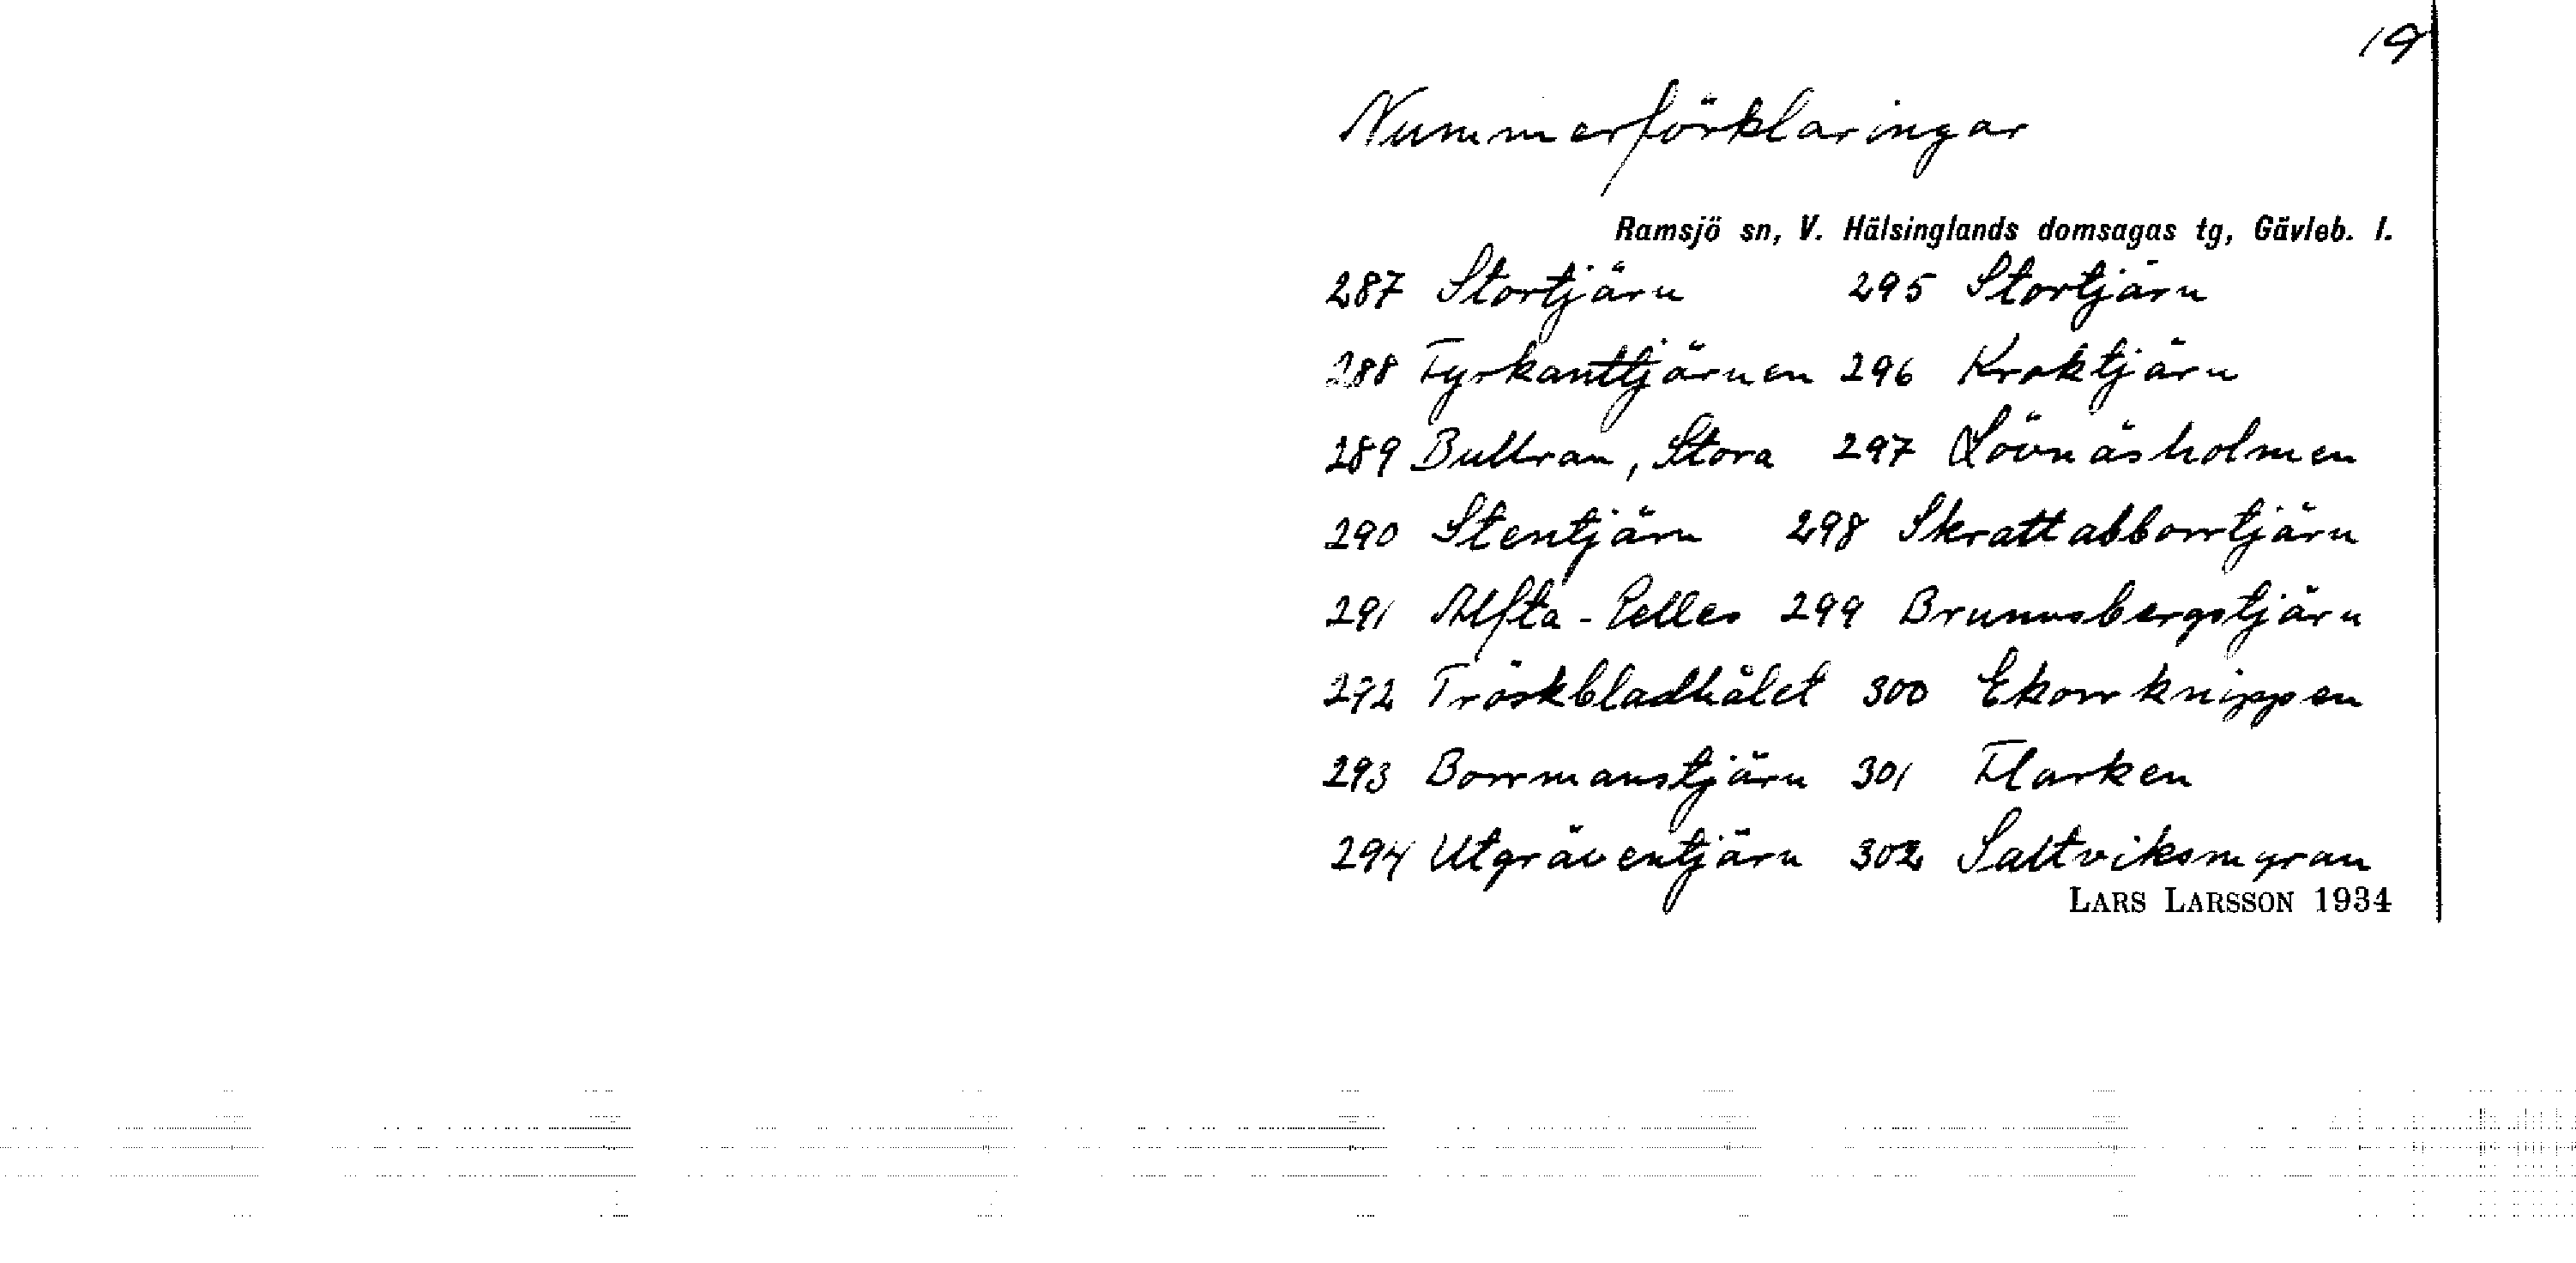 19
Nummerförklaringar
Ramsjö sn, V. Hälsinglands domsagas tg, Gävleb. l.
287 Stortjärn 295 Stortjärn
288 Fyrkanttjärnen 296 Kroktjärn
289 Bullran, Stora 297 Lövnäsholmen
290 Stentjärn 298 Skrattabborrtjärn
291 Alfta-Pelles 299 Brunnsbergstjärn
292 Tröskbladhålet 300 Ekorrknippen
293 Borrmanstjärn 301 Flarken
294 Utgräventjärn 302 Saltviksmyran
LARS LARSSON 1934